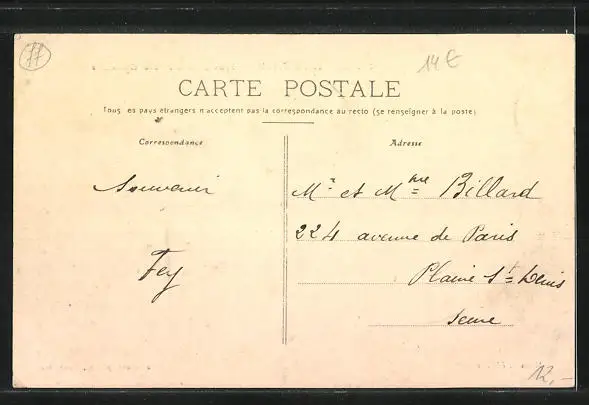 77
14€
CARTE POSTALE
Tous les pays étrangers n'acceptent pas la correspondance au recto (se renseigner à la poste)
Correspondance
Adresse
Souvenir
Fey
Mr et Mme Billard
224 avenue de Paris
Plaine St Denis
Seine
12,-